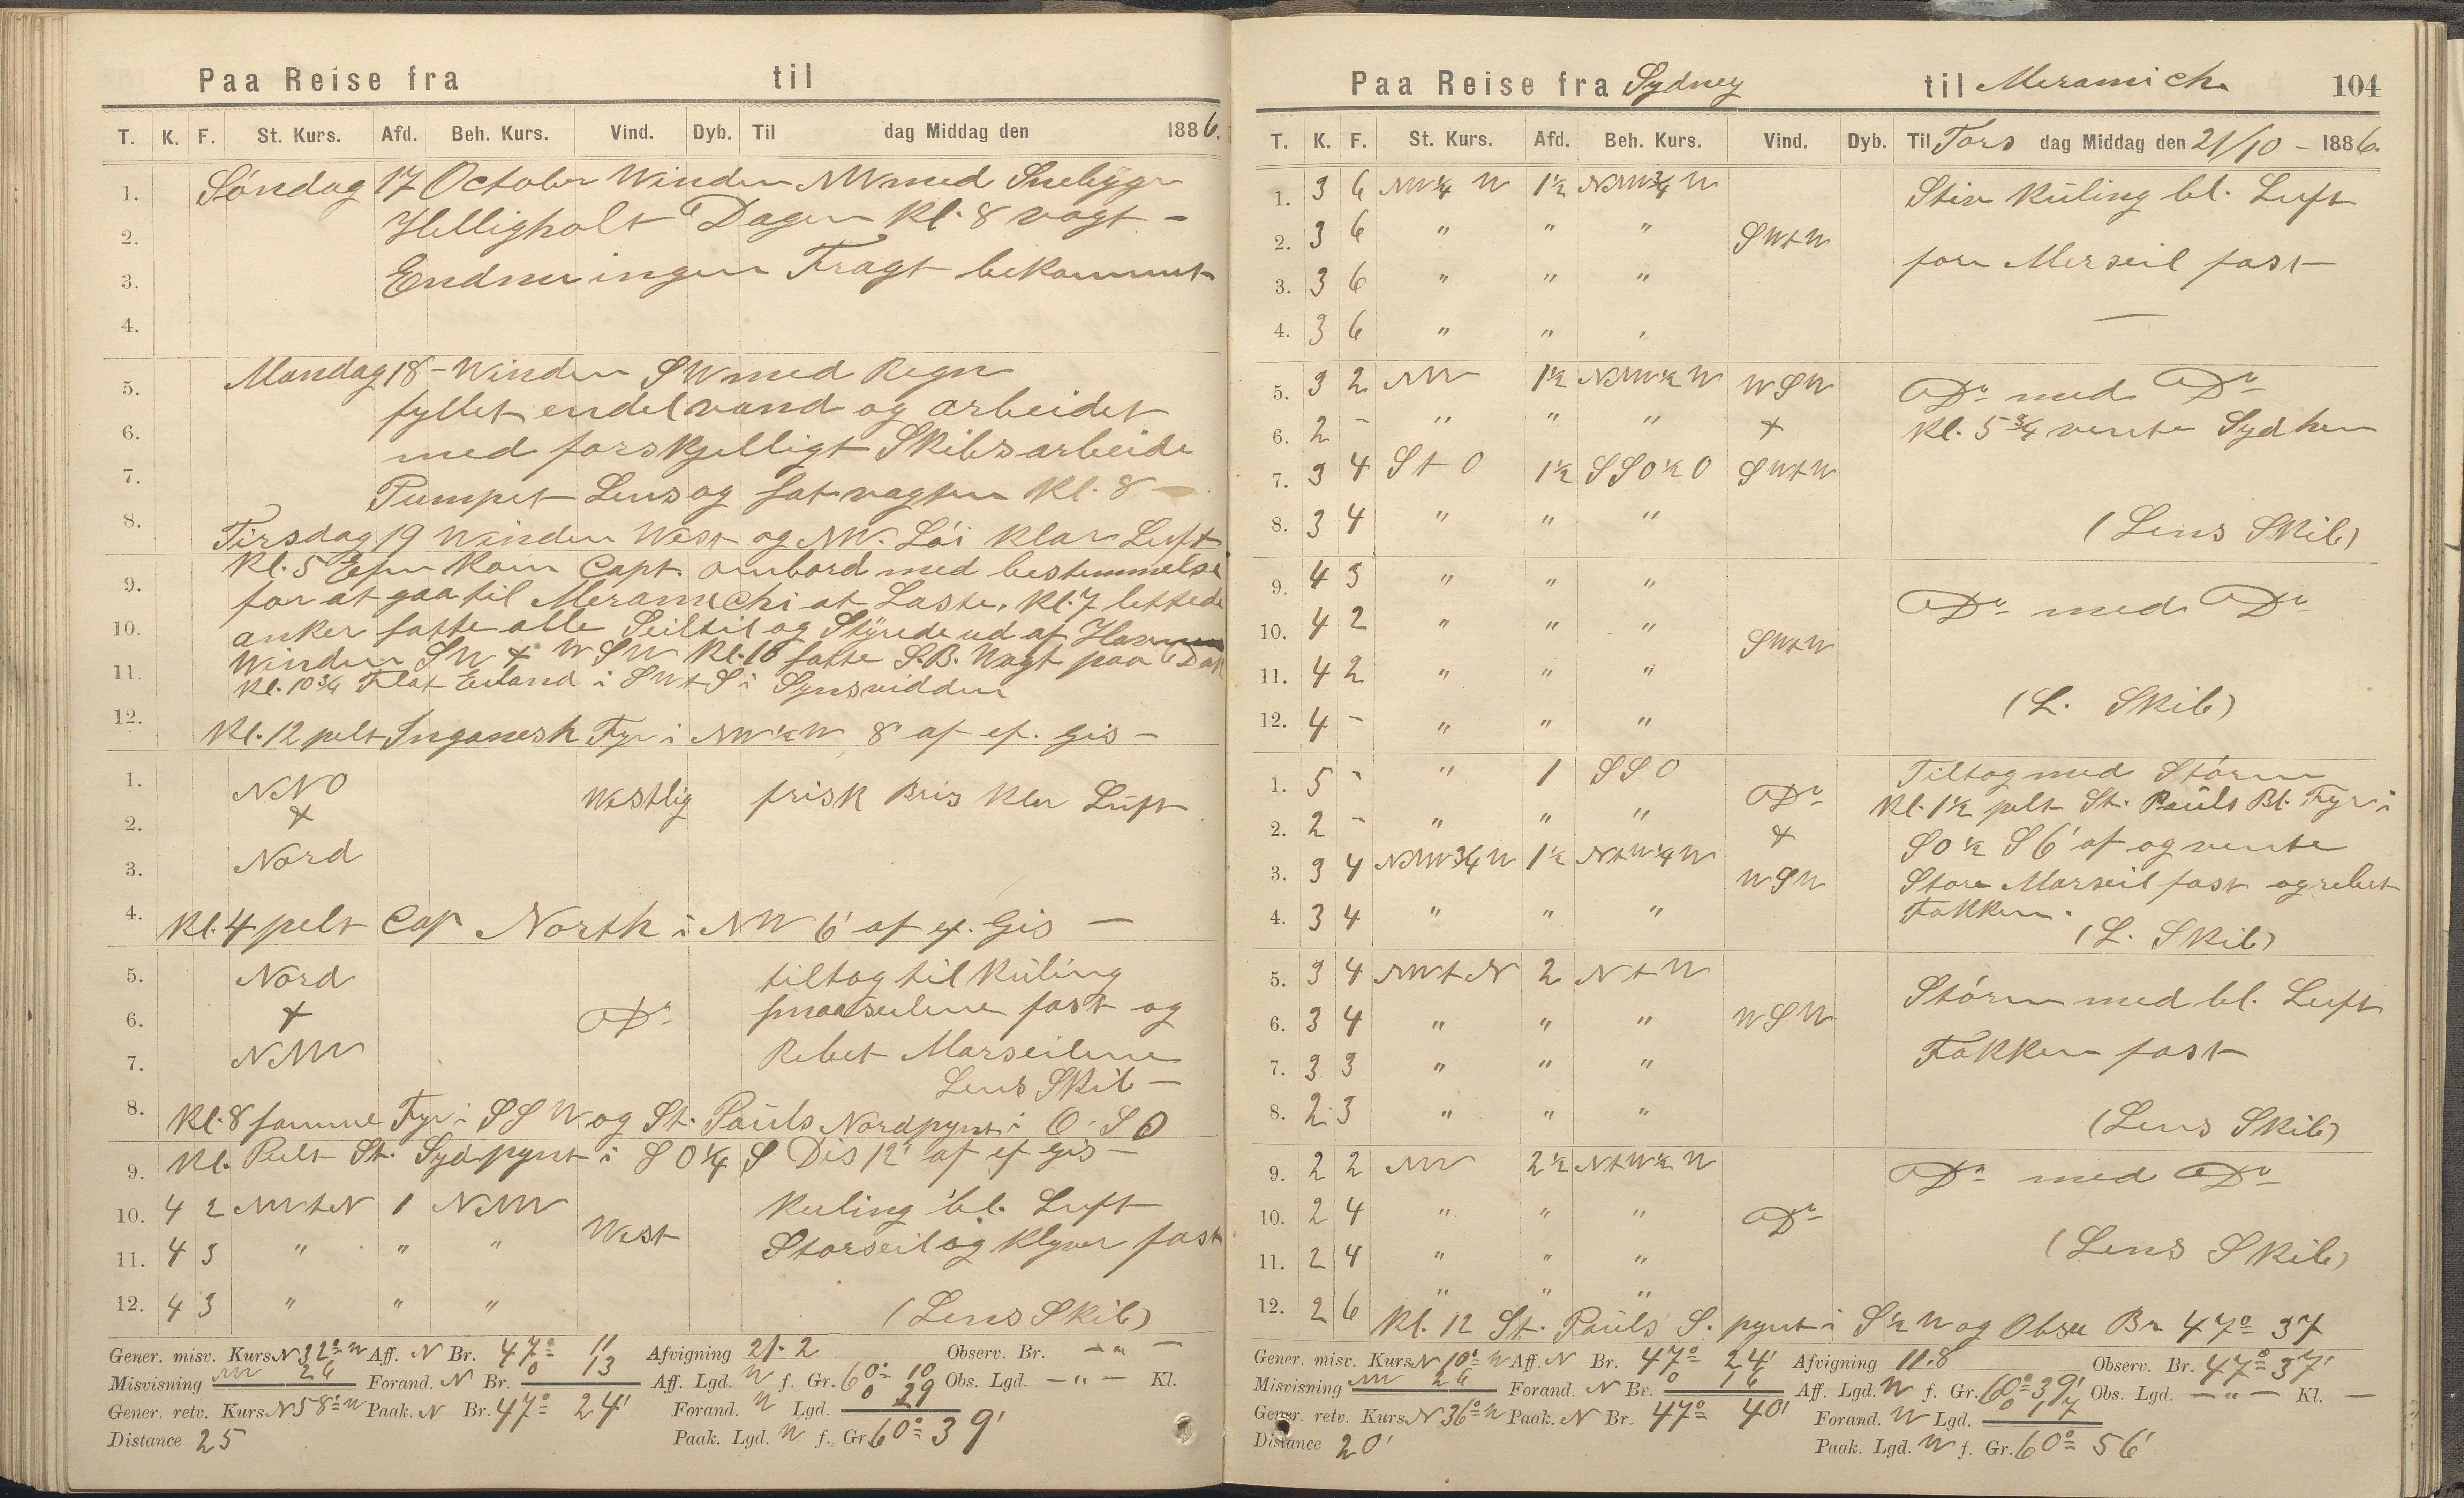 Paa Reise fra til
T. K. F. St. Kurs. Afd. Beh. Kurs. Vind. Dyb. Til dag Middag den 1886.
1. Söndag 17 October Winden NW med Snebyger
2. Helligholt Dagen Kl. 8 vagt –
3. Endnu ingen Fragt bekommet
4.
5. Mandag 18 – Winden SW med Regn
fyllet endel vand og arbeidet
6. med forskjelligt Skibsarbeide
7. Pumpet Lens og sat vagten Kl. 8 –
8. Tirsdag 19 Winden West og NW. Löi klar Luft
Kl. 5 Efm kom Capt. ombord med bestemmelse
9. for at gaa til Meramichi at Laste, Kl. 7 lettede
10. anker satte alle Seil til og Styrede ud af Havnen
Winden SW + WSW Kl. 10 satte S.B. Vagt paa Dæk
11. Kl. 10 3/4 Flat Eiland i SWtS i Synsvidden
12. Kl. 12 pelt Inganesh Fyr i NW 1/2 W 8' af ef. Gis –
1. NNO Westlig frisk Bris klar Luft
2. +
3. Nord
4. Kl. 4 pelt Cap North i NW 6' af ef. Gis –
5. Nord tiltog til Küling
6. + Do smaaseilene fast og
7. NNW Rebet Marseilene
Lens Skib –
8. Kl. 8 samme Fyr i SSW og St. Pauls Nordpynt i O.S.O
9. Kl. Pelt St. Sydpynt i SO 1/4 S Dis 12' af ef Gis –
10. 4 2 NWtN 1 NNW Kuling bl. Luft
11. 4 3 " " " West Storseil og Klyver fast
12. 4 3 " " " (Lens Skib)
Gener. misv. Kurs N 32° W Aff. N Br. 47° 11 Afvigning 21.2 Observ. Br. – " –
Misvisning NW 26 Forand. N Br. 0 13 Aff. Lgd. W f. Gr. 60° 10 Obs. Lgd. – " – Kl.
Gener. retv. Kurs N 58° W Paak. N Br. 47° 24' Forand. W Lgd. 0 29
Distance 25 Paak. Lgd. W f. Gr. 60° 39'
Paa Reise fra Sydney til Meramich. 104
T. K. F. St. Kurs. Afd. Beh. Kurs. Vind. Dyb. Til Tors dag Middag den 21/10 – 1886.
1. 3 6 NW 1/4 W 1 1/2 NNW 3/4 W Stiv Küling bl. Luft
2. 3 6 " " " SWtW
3. 3 6 " " " fore Merseil fast
4. 3 6 " " " —
5. 3 2 NW 1 1/2 NNW 1/2 W WSW Do med Do
6. 2 – " " " + Kl. 5 3/4 vente Sydhen
7. 3 4 StO 1 1/2 SSO 1/2 O SWtW
8. 3 4 " " " (Lens Skib)
9. 4 3 " " " Do med Do
10. 4 2 " " " SWtW
11. 4 2 " " "
12. 4 – " " " (L. Skib)
1. 5 – " 1 SSO Do Tiltog med Störm
2. 2 – " " " + Kl. 1 1/2 pelt St. Pauls Bl. Fyr i
SO 1/2 S 6' af og vente
3. 3 4 NNW 3/4 W 1 1/2 NtW 1/4 W WSW Store Marseil fast og rebet
4. 3 4 " " " Fokken.
(L. Skib)
5. 3 4 NWtN 2 NtW Störm med bl. Luft
6. 3 4 " " " WSW
7. 3 3 " " " Fokken fast
8. 2 3 " " " (Lens Skib)
9. 2 2 NW 2 1/2 NtW 1/2 W Do med Do
10. 2 4 " " " Do
11. 2 4 " " " (Lens Skib)
" " "
12. 2 6 Kl. 12 St. Pauls S. pynt i S 1/2 W og Obser Br 47° 37
Gener. misv. Kurs N 10° W Aff. N Br. 47° 24' Afvigning 11.8 Observ. Br. 47° 37'
Misvisning NW 26 Forand. N Br. 0 16 Aff. Lgd. W f. Gr. 60° 39' Obs. Lgd. – " – Kl. –
Gener. retv. Kurs N 36° W Paak. N Br. 47° 40' Forand. W Lgd. 0 17
Distance 20' Paak. Lgd. W f. Gr. 60° 56'